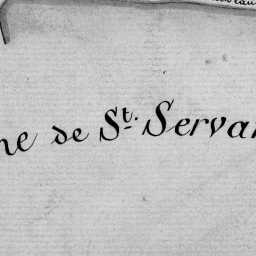 ne de St. Servan